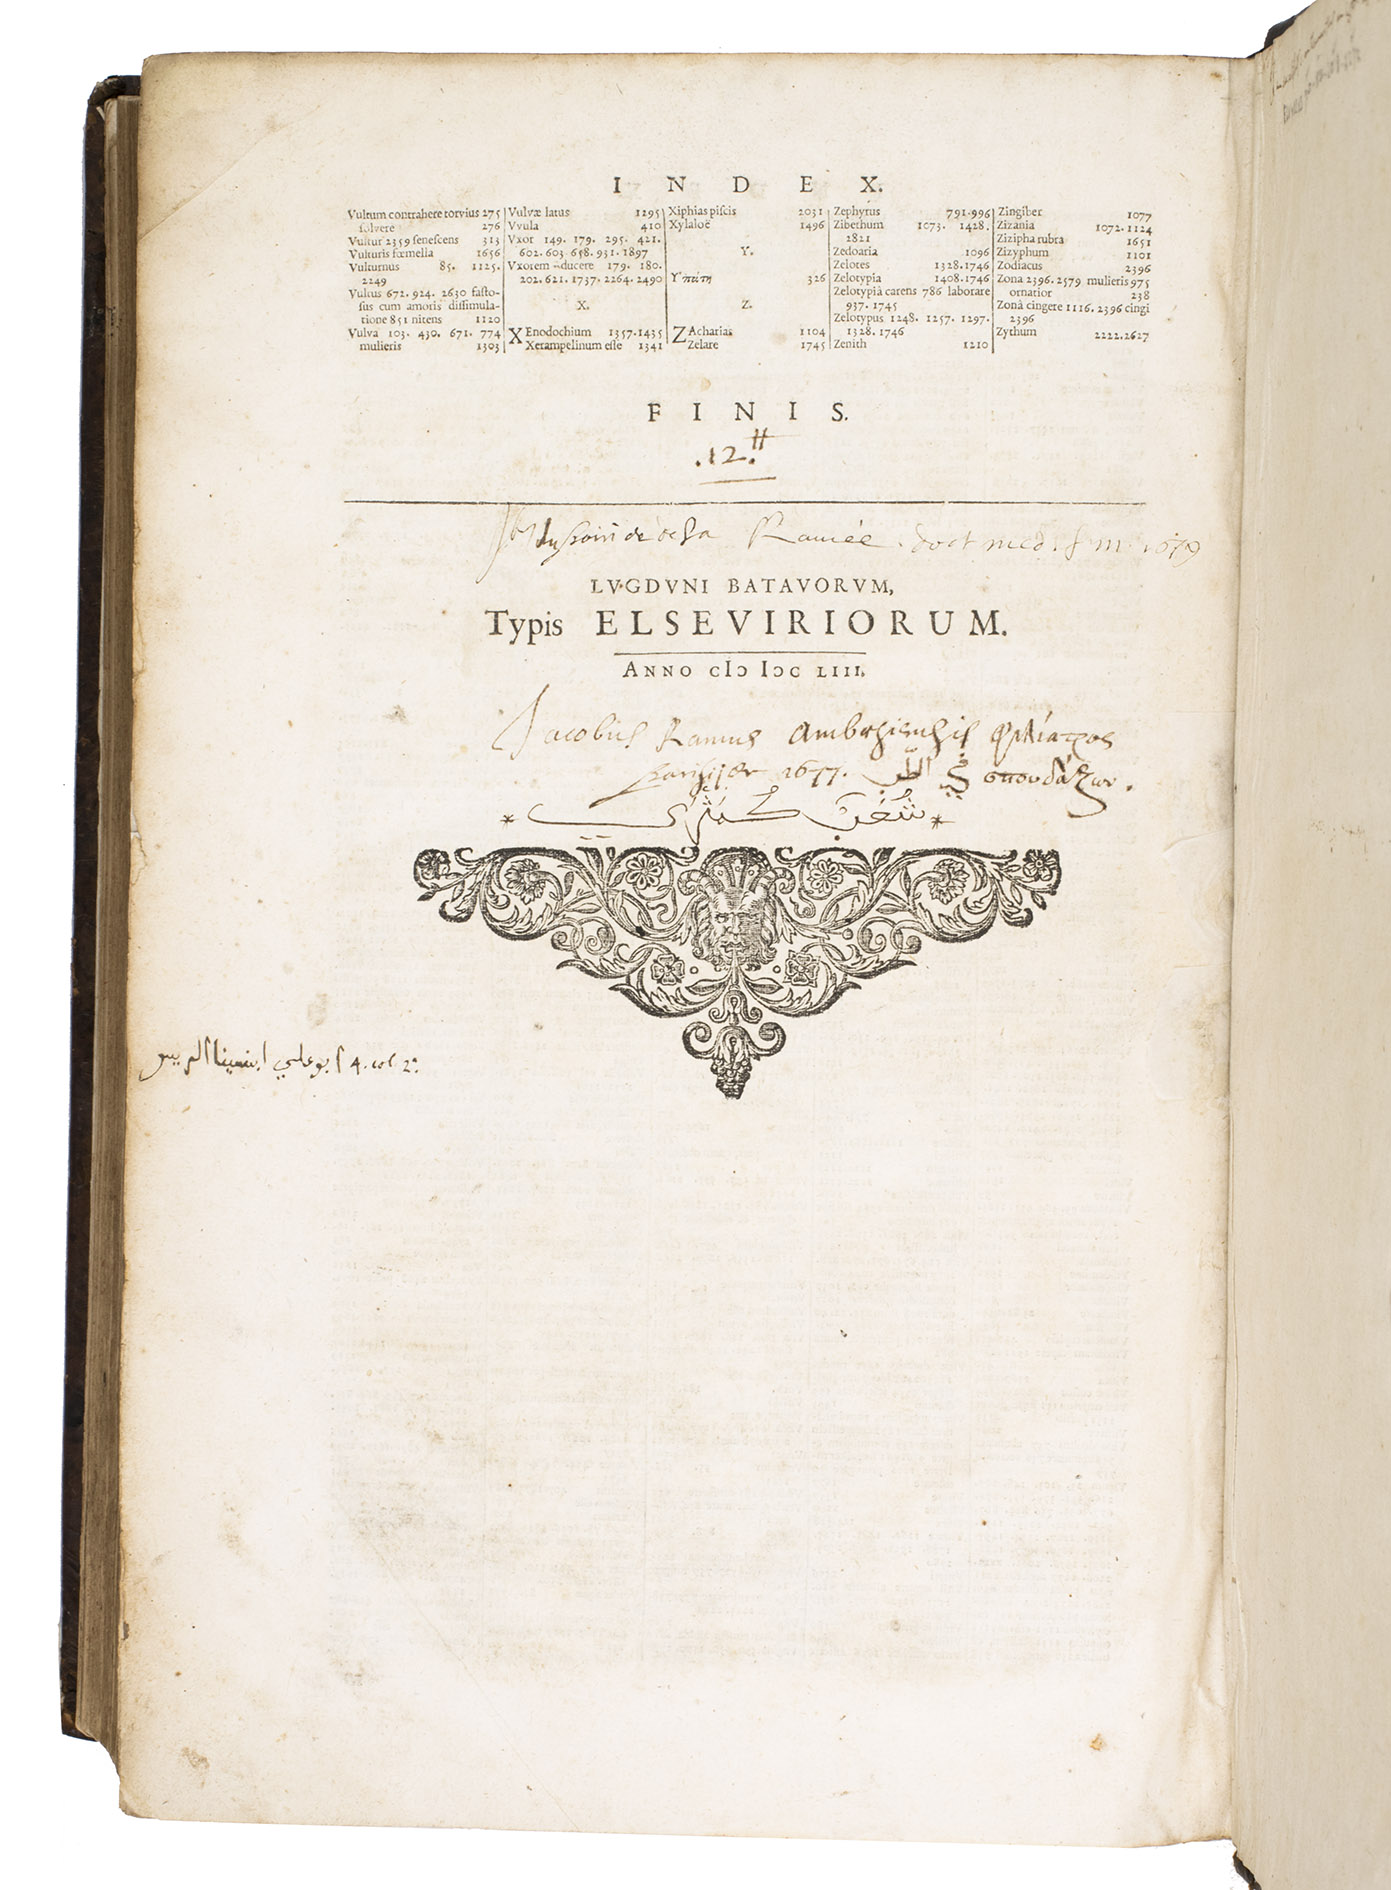 INDEX.
Vultum contrahere torvius 275
solvere 276
Vultur 2359 senescens 313
Vulturis fœmella 1656
Vulturnus 85. 1125.
2249
Vultus 672. 924. 2630 fasto-
sus cum amoris dissimula-
tione 851 nitens 1120
Vulva 103. 430. 671. 774
mulieris 1303
Vulvæ latus 1295
Vvula 410
Vxor 149. 179. 295. 421.
602. 603 658. 931. 1897
Vxorem ducere 179. 180.
202. 621. 1737. 2264. 2490
X.
XEnodochium 1357.1435
Xerampelinum esse 1341
Xiphias piscis 2031
Xylaloë 1496
Y.
Υπάτη 326
Z.
ZAcharias 1104
Zelare 1745
Zephyrus 791.996
Zibethum 1073. 1428.
2821
Zedoaria 1096
Zelotes 1328.1746
Zelotypia 1408.1746
Zelotypiâ carens 786 laborare
937. 1745
Zelotypus 1248. 1257. 1297.
1328. 1746
Zenith 1210
Zingiber 1077
Zizania 1072. 1124
Zizipha rubra 1651
Zizyphum 1101
Zodiacus 2396
Zona 2396. 2579 mulieris 975
ornatior 238
Zonâ cingere 1116. 2396 cingi
2396
Zythum 2222.2627
FINIS.
.12.
Ramée. doct med. 1679
LVGDVNI BATAVORVM,
Typis ELSEVIRIORUM.
ANNO CIƆ IƆC LIII.
Jacobus Ramus φιλίατρος
1677. في الطب σπουδάζων.
ابو علي ابنسينا 4. col. 2ª.